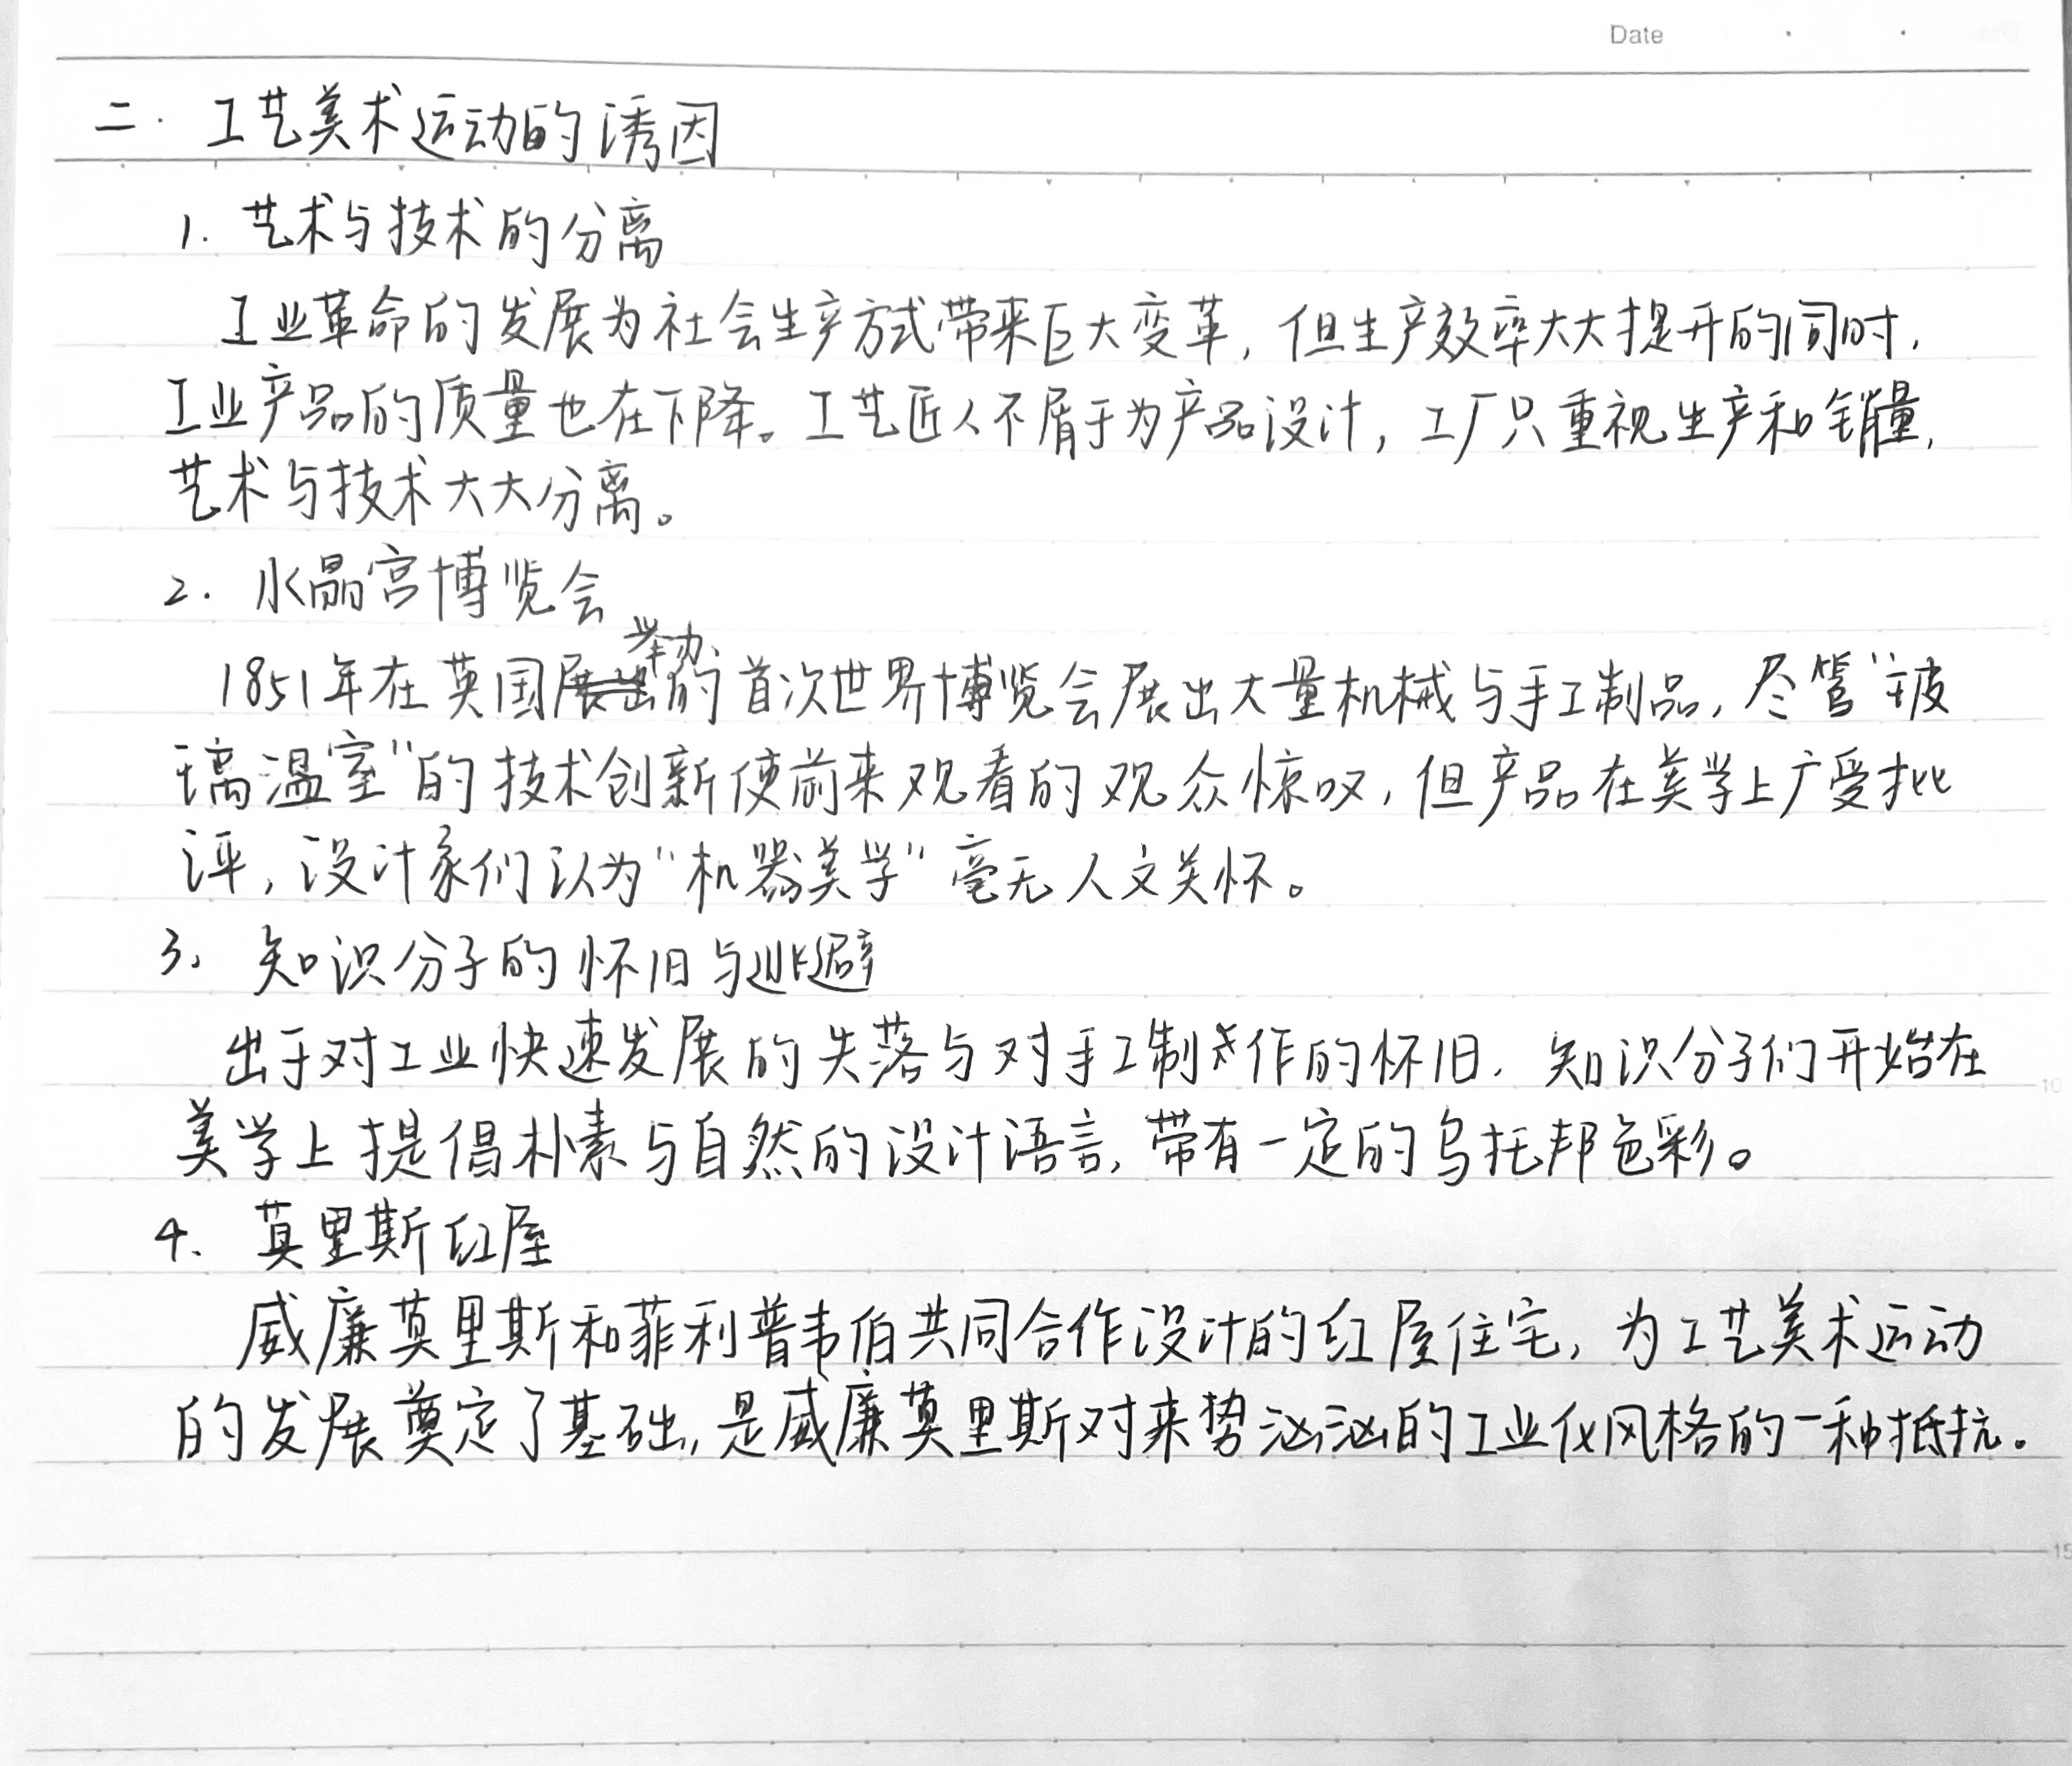 Date
二. 工艺美术运动的诱因
1. 艺术与技术的分离
工业革命的发展为社会生产方式带来巨大变革，但生产效率大大提升的同时，
工业产品的质量也在下降。工艺匠人不屑于为产品设计，工厂只重视生产和销量，
艺术与技术大大分离。
2. 水晶宫博览会
1851年在英国举办的首次世界博览会展出大量机械与手工制品，尽管“玻
璃温室”的技术创新使前来观看的观众惊叹，但产品在美学上广受批
评，设计家们认为“机器美学”毫无人文关怀。
3、知识分子的怀旧与逃避
出于对工业快速发展的失落与对手工制作的怀旧，知识分子们开始在
美学上提倡朴素与自然的设计语言，带有一定的乌托邦色彩。
4、莫里斯红屋
威廉莫里斯和菲利普韦伯共同合作设计的红屋住宅，为工艺美术运动
的发展奠定了基础，是威廉莫里斯对来势汹汹的工业化风格的一种抵抗。
5
10
15